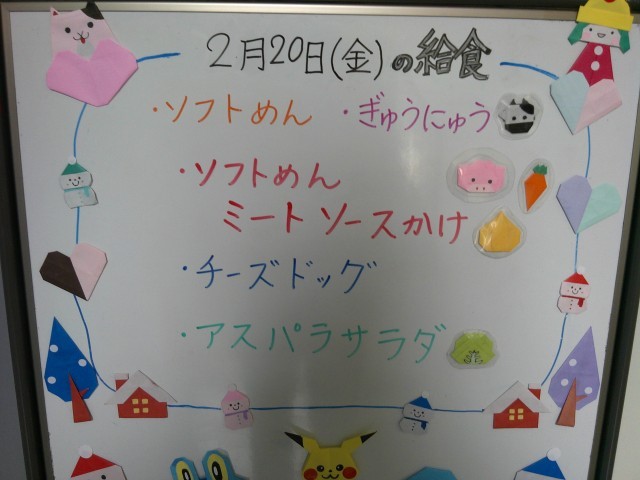 2月20日(金)の給食
・ソフトめん ・ぎゅうにゅう
・ソフトめん
ミートソースかけ
・チーズドッグ
・アスパラサラダ